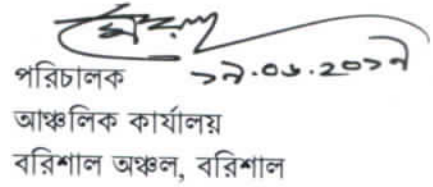 পরিচালক ১৯.০৬.২০১৯
আঞ্চলিক কার্যালয়
বরিশাল অঞ্চল, বরিশাল